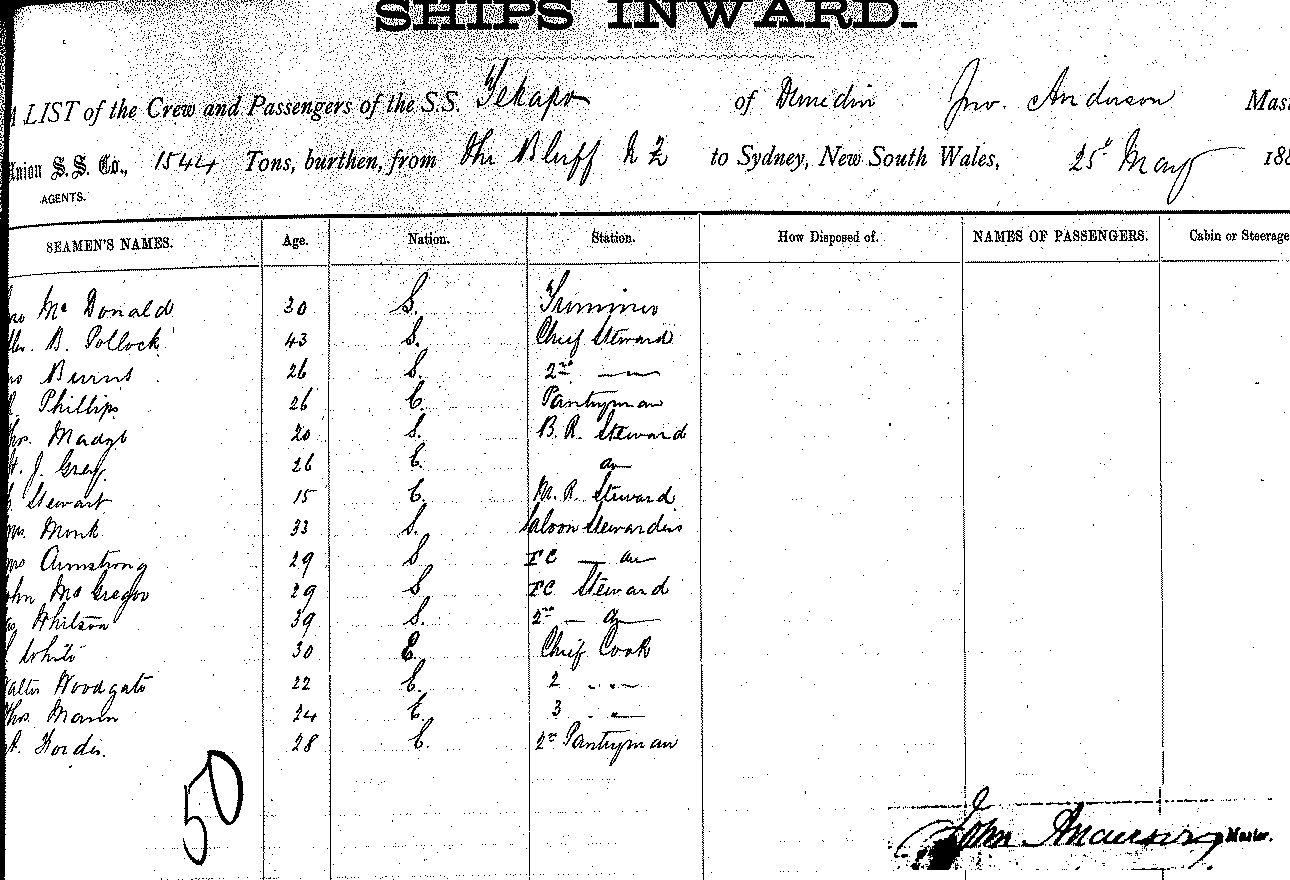 SHIPS INWARD.
LIST of the Crew and Passengers of the S.S. Tekapo of Dunedin Jno. Anderson Mas
Union S.S. Co., 1544 Tons, burthen, from the Bluff N Z to Sydney, New South Wales, 25 May 188
AGENTS.
SEAMEN'S NAMES. Age. Nation. Station. How Disposed of. NAMES OF PASSENGERS. Cabin or Steerage
Mc Donald 30 S. Trimmer
B. Pollock 43 S. Chief Steward
Burns 26 S. 2nd —
Phillips 26 E. Pantryman
20 S. B. R. Steward
J. Grey 26 E. do
Stewart 15 E. M. R. Steward
Monk 33 S. Saloon Stewardess
Armstrong 29 S FC — do
John McGregor 29 S FC Steward
Whitson 39 S. 2nd — do
White 30 E. Chief Cook
Walter Woodgate 22 E. 2 "
Thos. Mann 24 E. 3 "
28 E. 2nd Pantryman
50
John Anderson Master.